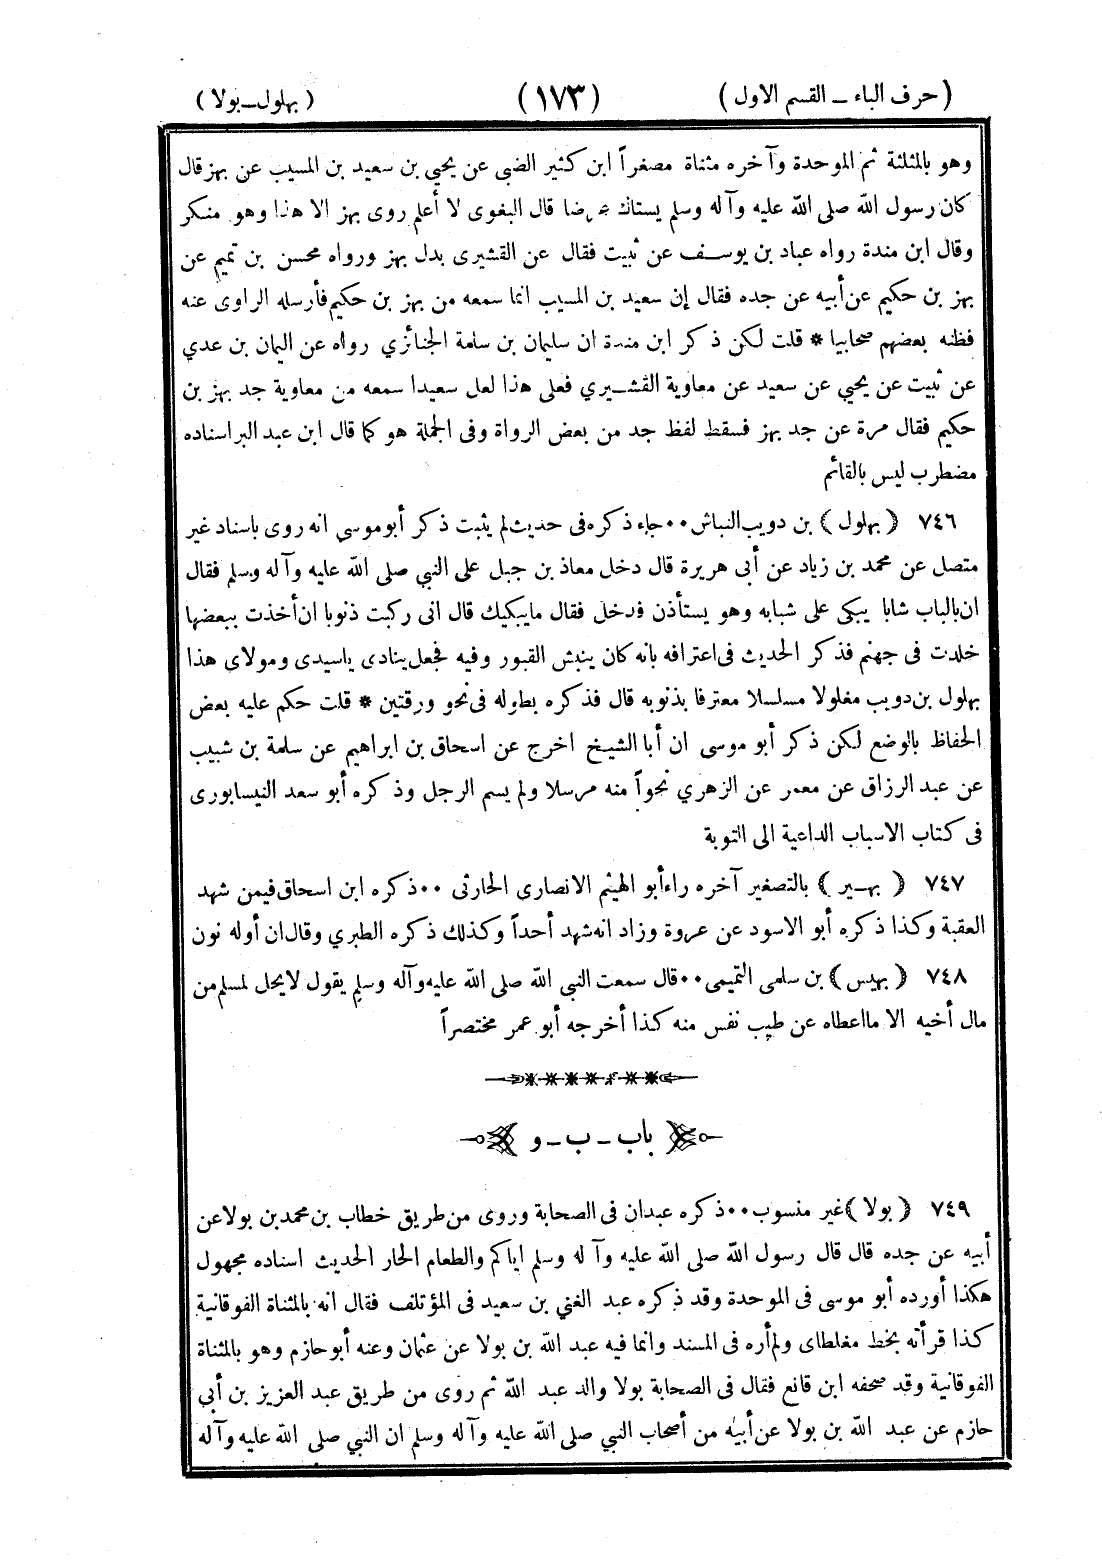 ( حرف الباء – القسم الاول )
( ١٧٣ )
( بهلول–بولا )
وهو بالمثلثة ثم الموحدة وآخره مثناة مصغراً ابن كثير الضبى عن يحيى بن سعيد بن المسيب عن بهز قال
كان رسول الله صلى الله عليه وآله وسلم يستاك عرضا قال البغوى لا أعلم روى بهز الا هذا وهو منكر
وقال ابن مندة رواه عباد بن يوسف عن ثبيت فقال عن القشيرى بدل بهز ورواه محسن بن تميم عن
بهز بن حكيم عن أبيه عن جده فقال إن سعيد بن المسيب انما سمعه من بهز بن حكيم فأرسله الراوى عنه
فظنه بعضهم صحابيا * قلت لكن ذكر ابن مندة ان سليمان بن سلمة الجنائزي رواه عن اليمان بن عدي
عن ثبيت عن يحيى عن سعيد عن معاوية القشيري فعلى هذا لعل سعيدا سمعه من معاوية جد بهز بن
حكيم فقال مرة عن جد بهز فسقط لفظ جد من بعض الرواة وفى الجملة هو كما قال ابن عبد البر اسناده
مضطرب ليس بالقائم
٧٤٦ ( بهلول ) بن دويب النباش ٠٠ جاء ذكره فى حديث لم يثبت ذكر أبو موسى انه روى باسناد غير
متصل عن محمد بن زياد عن أبى هريرة قال دخل معاذ بن جبل على النبي صلى الله عليه وآله وسلم فقال
ان بالباب شابا يبكى على شبابه وهو يستأذن فدخل فقال مايبكيك قال انى ركبت ذنوبا ان أخذت ببعضها
خلدت فى جهنم فذكر الحديث فى اعترافه بانه كان ينبش القبور وفيه فجعل ينادى ياسيدى ومولاى هذا
بهلول بن دويب مغلولا مسلسلا معترفا بذنوبه قال فذكره بطوله فى نحو ورقتين * قلت حكم عليه بعض
الحفاظ بالوضع لكن ذكر أبو موسى ان أبا الشيخ اخرج عن اسحاق بن ابراهيم عن سلمة بن شبيب
عن عبد الرزاق عن معمر عن الزهري نحواً منه مرسلا ولم يسم الرجل وذكره أبو سعد النيسابورى
فى كتاب الاسباب الداعية الى التوبة
٧٤٧ ( بهير ) بالتصغير آخره راء أبو الهيثم الانصارى الحارثى ٠٠ ذكره ابن اسحاق فيمن شهد
العقبة وكذا ذكره أبو الاسود عن عروة وزاد انه شهد أحداً وكذلك ذكره الطبري وقال ان أوله نون
٧٤٨ ( بهيس ) بن سلمى التميمى ٠٠ قال سمعت النبي الله صلى الله عليه وآله وسلم يقول لايحل لمسلم من
مال أخيه الا مااعطاه عن طيب نفس منه كذا أخرجه أبو عمر مختصراً
باب – ب – و
٧٤٩ ( بولا ) غير منسوب ٠٠ ذكره عبدان فى الصحابة وروى من طريق خطاب بن محمد بن بولا عن
أبيه عن جده قال قال رسول الله صلى الله عليه وآله وسلم اياكم والطعام الحار الحديث اسناده مجهول
هكذا أورده أبو موسى فى الموحدة وقد ذكره عبد الغني بن سعيد فى المؤتلف فقال انه بالمثناة الفوقانية
كذا قرأته بخط مغلطاى ولم أره فى المسند وانما فيه عبد الله بن بولا عن عثمان وعنه أبو حازم وهو بالمثناة
الفوقانية وقد صحفه ابن قانع فقال فى الصحابة بولا والد عبد الله ثم روى من طريق عبد العزيز بن أبي
حازم عن عبد الله بن بولا عن أبيه من أصحاب النبي صلى الله عليه وآله وسلم ان النبي صلى الله عليه وآله